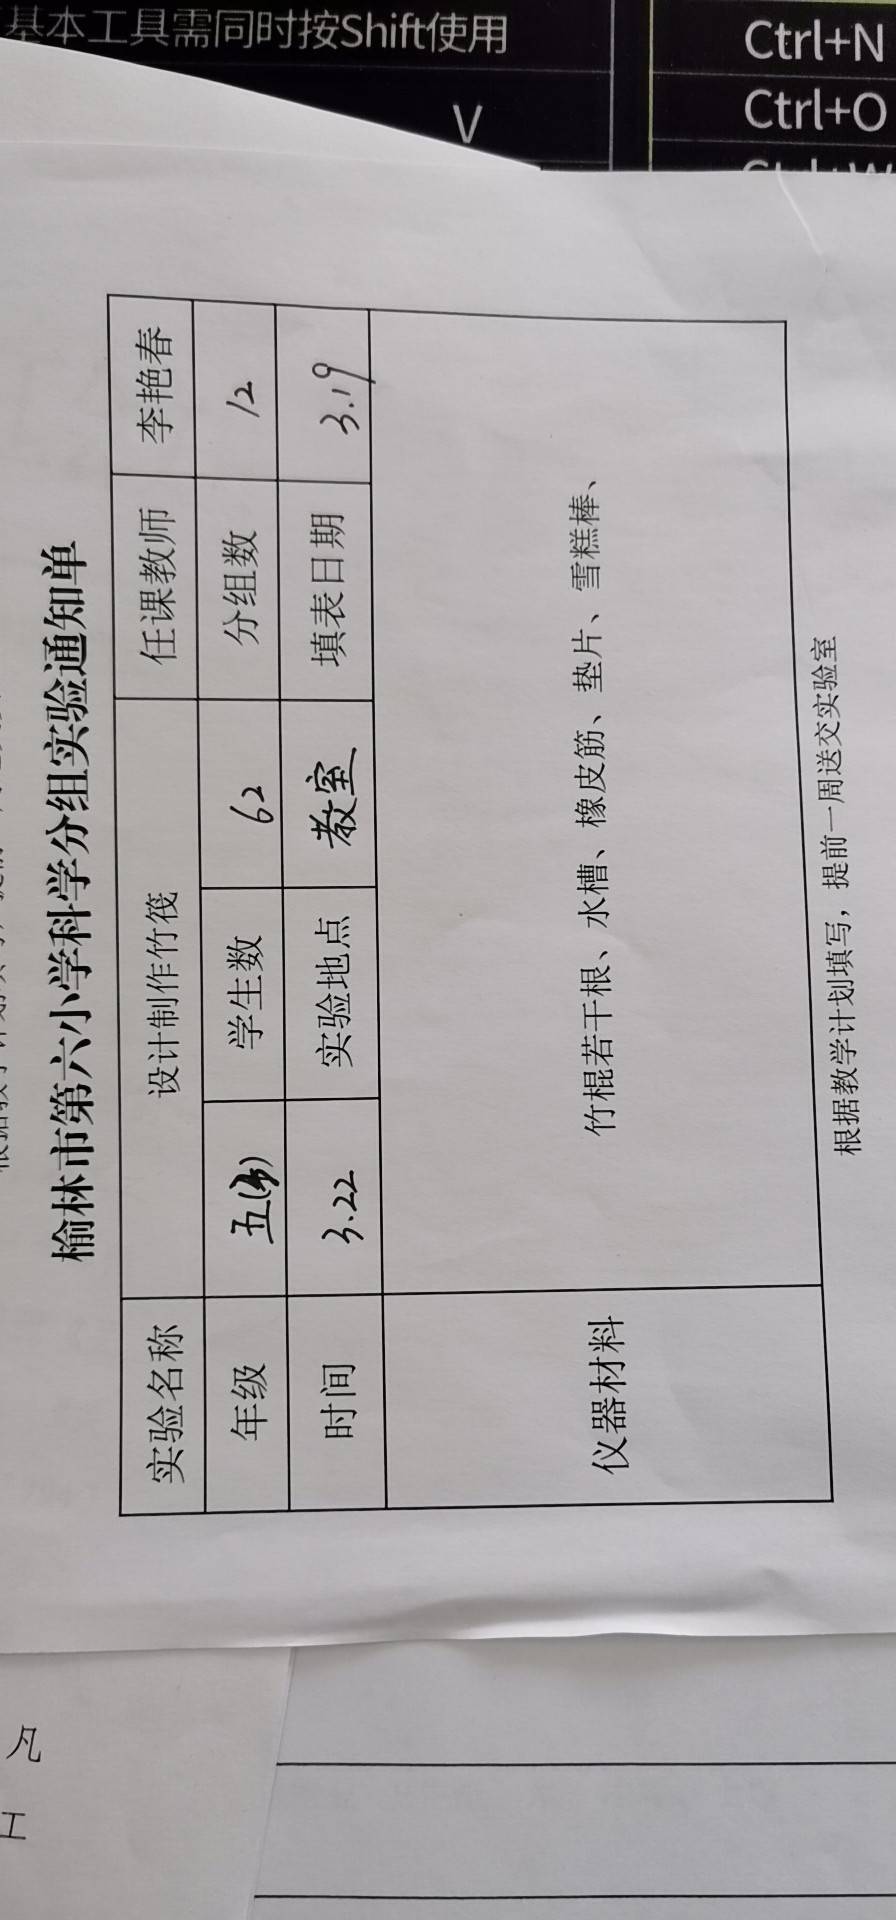 基本工具需同时按Shift使用
V
Ctrl+N
Ctrl+O
榆林市第六小学科学分组实验通知单
实验名称 设计制作竹筏 任课教师 李艳春
年级 五 学生数 62 分组数 12
时间 3.22 实验地点 教室 填表日期 3.19
仪器材料 竹棍若干根、水槽、橡皮筋、垫片、雪糕棒、
根据教学计划填写，提前一周送交实验室
凡
工